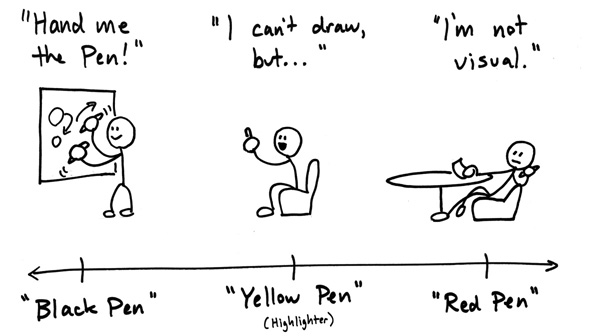 "Hand me
the Pen!"
"I can't draw,
but... "
"I'm not
visual."
"Black Pen"
"Yellow Pen"
(Highlighter)
"Red Pen"